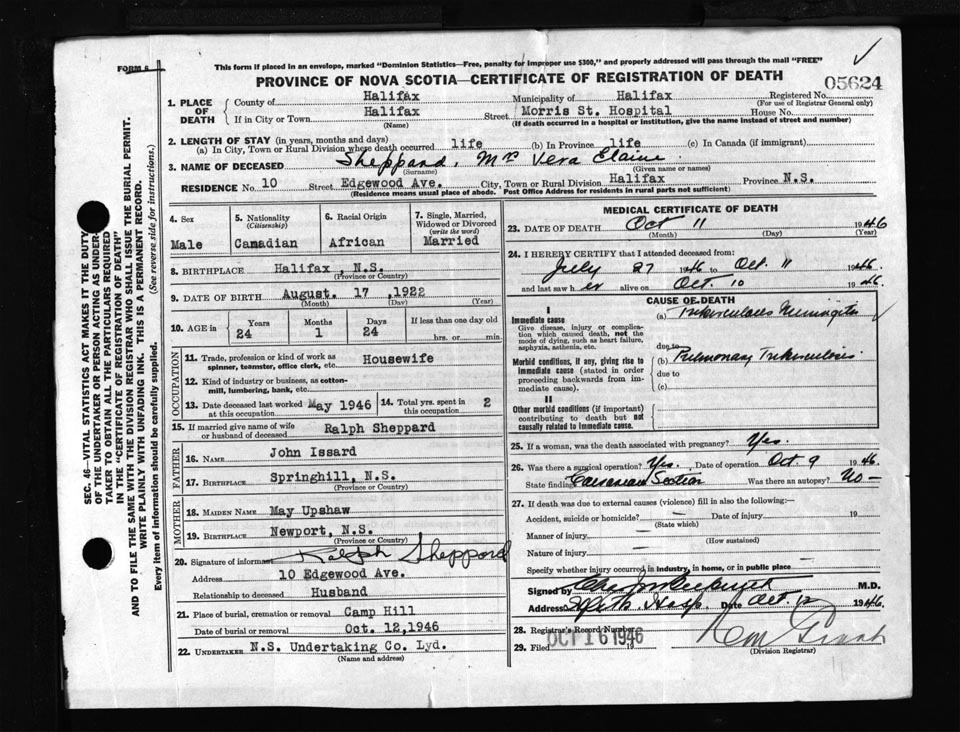 This form if placed in an envelope, marked "Dominion Statistics—Free, penalty for improper use $300," and properly addressed will pass through the mail "FREE"
FORM 6
PROVINCE OF NOVA SCOTIA—CERTIFICATE OF REGISTRATION OF DEATH
05624
1. PLACE OF DEATH
County of Halifax Municipality of Halifax Registered No.
(For use of Registrar General only)
If in City or Town Halifax Street Morris St. Hospital House No.
(Name) (If death occurred in a hospital or institution, give the name instead of street and number)
2. LENGTH OF STAY (in years, months and days)
(a) In City, Town or Rural Division where death occurred life (b) In Province life (c) In Canada (if immigrant)
3. NAME OF DECEASED Sheppard, Mrs Vera Elaine
(Surname) (Given name or names)
RESIDENCE No. 10 Street Edgewood Ave. City, Town or Rural Division Halifax Province N.S.
(Residence means usual place of abode. Post Office Address for residents in rural parts not sufficient)
4. Sex
Male
5. Nationality
(Citizenship)
Canadian
6. Racial Origin
African
7. Single, Married, Widowed or Divorced
(write the word)
Married
8. BIRTHPLACE Halifax, N.S.
(Province or Country)
9. DATE OF BIRTH August. 17 ,1922
(Month) (Day) (Year)
10. AGE in
Years Months Days If less than one day old
24 1 24 hrs. or min.
OCCUPATION
11. Trade, profession or kind of work as spinner, teamster, office clerk, etc. Housewife
12. Kind of industry or business, as cotton-mill, lumbering, bank, etc.
13. Date deceased last worked at this occupation May 1946
14. Total yrs. spent in this occupation 2
15. If married give name of wife or husband of deceased Ralph Sheppard
FATHER
16. Name John Issard
17. Birthplace Springhill, N.S.
(Province or Country)
MOTHER
18. Maiden Name May Upshaw
19. Birthplace Newport, N.S.
(Province or Country)
20. Signature of informant Ralph Sheppard
Address 10 Edgewood Ave.
Relationship to deceased Husband
21. Place of burial, cremation or removal Camp Hill
Date of burial or removal Oct. 12,1946
22. UNDERTAKER N.S. Undertaking Co. Lyd.
(Name and address)
MEDICAL CERTIFICATE OF DEATH
23. DATE OF DEATH Oct 11 1946
(Month) (Day) (Year)
24. I HEREBY CERTIFY that I attended deceased from:
July 27 1946 to Oct. 11 1946.
and last saw her alive on Oct. 10 1946.
CAUSE OF DEATH
I
Immediate cause
Give disease, injury or complication which caused death, not the mode of dying, such as heart failure, asphyxia, asthenia, etc.
(a) Tuberculous Meningitis
due to
Morbid conditions, if any, giving rise to immediate cause (stated in order proceeding backwards from immediate cause).
(b) Pulmonary Tuberculosis.
due to
(c)
II
Other morbid conditions (if important) contributing to death but not causally related to immediate cause.
25. If a woman, was the death associated with pregnancy? Yes.
26. Was there a surgical operation? Yes. Date of operation Oct. 9 1946.
State findings Caesarean Section Was there an autopsy? No-
27. If death was due to external causes (violence) fill in also the following:—
Accident, suicide or homicide? — Date of injury 19
(State which)
Manner of injury —
(How sustained)
Nature of injury —
Specify whether injury occurred in industry, in home, or in public place —
Signed by M.D.
Address Hosp. Date Oct. 12 1946
28. Registrar's Record Number
29. Filed OCT 16 1946 19
(Division Registrar)
SEC. 46—VITAL STATISTICS ACT MAKES IT THE DUTY
OF THE UNDERTAKER OR PERSON ACTING AS UNDER-
TAKER TO OBTAIN ALL THE PARTICULARS REQUIRED
IN THE "CERTIFICATE OF REGISTRATION OF DEATH"
AND TO FILE THE SAME WITH THE DIVISION REGISTRAR WHO SHALL ISSUE THE BURIAL PERMIT.
WRITE PLAINLY WITH UNFADING INK. THIS IS A PERMANENT RECORD.
Every item of information should be carefully supplied. (See reverse side for instructions.)